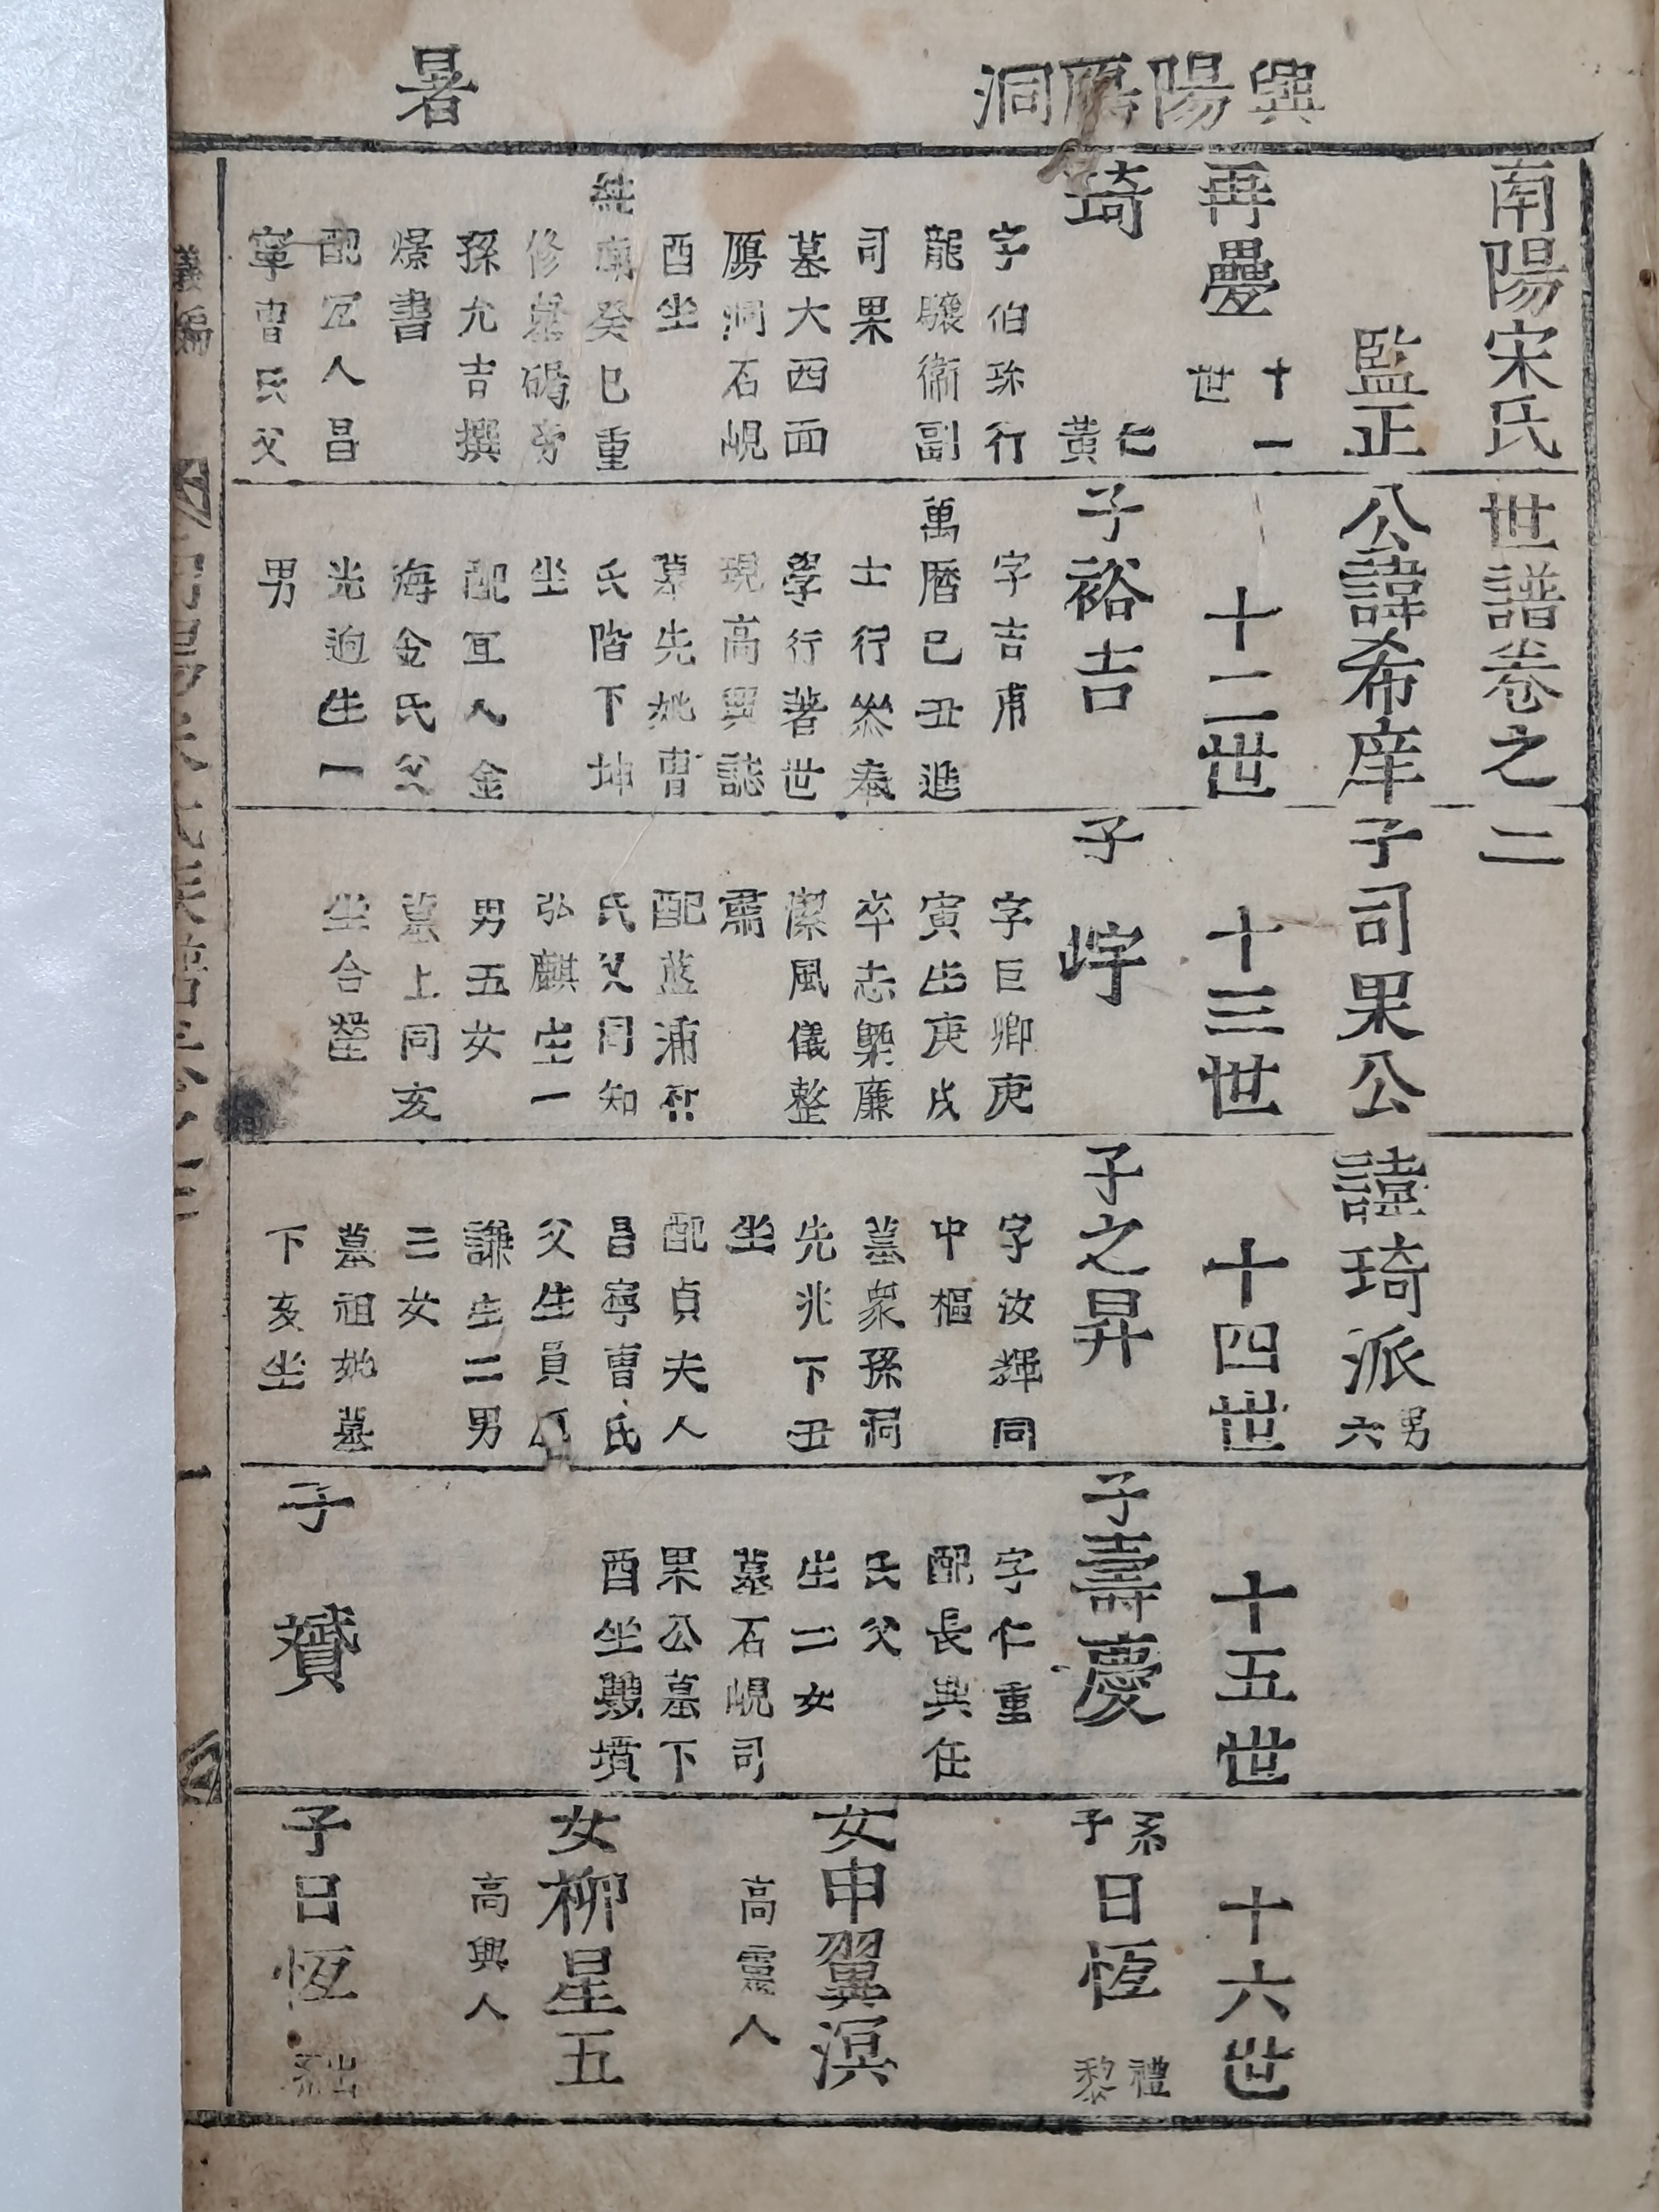 興陽鴈洞
暑
南陽宋氏世譜卷之二
監正公諱希庠子司果公諱琦派
男六
再疊
十一世
十二世
十三世
十四世
十五世
十六世
琦
仁黃
字伯珎行
龍驤衛副
司果
墓大西面
鴈洞石峴
酉坐
純廟癸巳重
修墓碣旁
孫允吉撰
燝書
配冝人昌
寧曺氏父
子裕吉
字吉甫
萬曆己丑進
士行叅奉
學行著世
現高興誌
墓先妣曺
氏階下坤
坐
配冝人金
海金氏父
光廸生一
男
子㟅
字巨卿庚
寅生庚戌
卒志槩廉
潔風儀整
肅
配藍浦
氏父同知
弘麒生一
男五女
墓上同亥
坐合塋
子之昇
字汝輝同
中樞
墓衆孫洞
先兆下丑
坐
配貞夫人
昌寧曺氏
父生員
謙生二男
二女
墓祖妣墓
下亥坐
子壽慶
字仁重
配長興任
氏父
生二女
墓石峴司
果公墓下
酉坐雙墳
子贇
系子日恆
禮黎
女申翼溟
高靈人
女柳星五
高興人
子日恆
出系
一